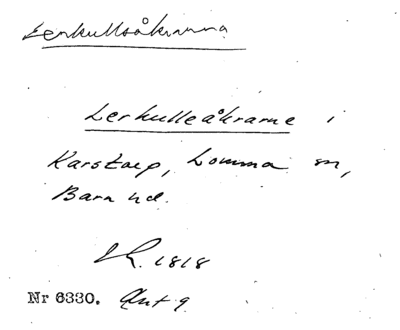 Lerkullsåkrarna
Lerkulleåkrarne i
Karstorp, Lomma sn,
Bara hd.
LR. 1818
Nr 6330. Akt 9